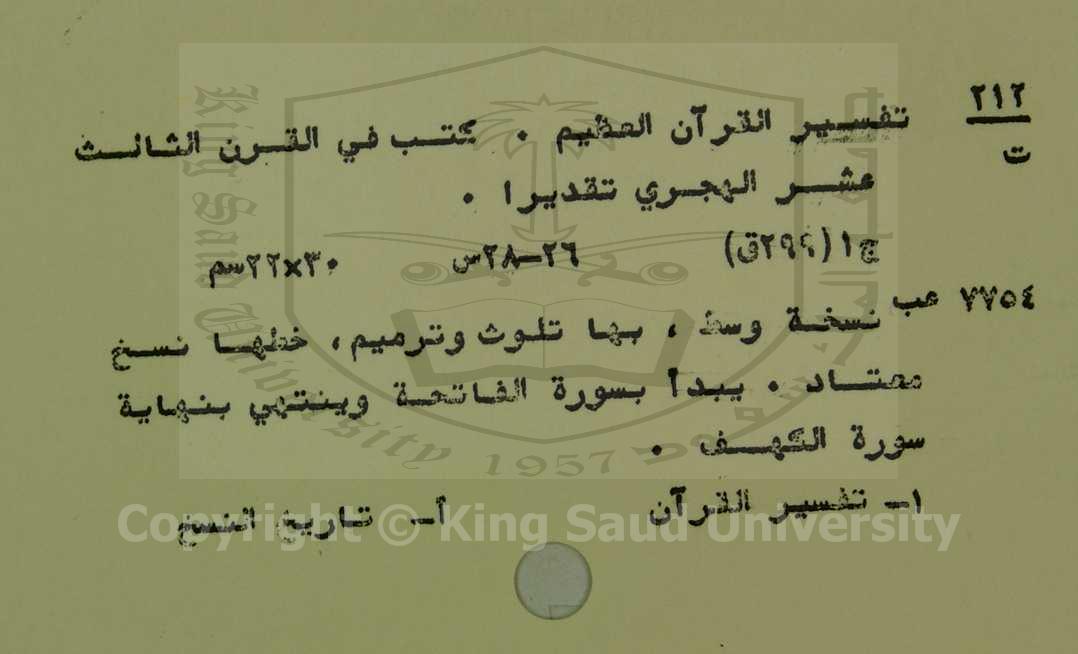 ٢١٢ تفسير القرآن العظيم . كتب في القرن الثالث
ت
عشر الهجري تقديرا .
ج١ (٢٩٩ق) ٢٦-٢٨س ٣٠×٢٢سم
٧٧٥٤ عب
نسخة وسط ، بها تلوث وترميم، خطها نسخ
معتاد . يبدأ بسورة الفاتحة وينتهي بنهاية
سورة الكهف .
١- تفسير القرآن أ- تاريخ النسخ
King Saud University 1957
Copyright © King Saud University